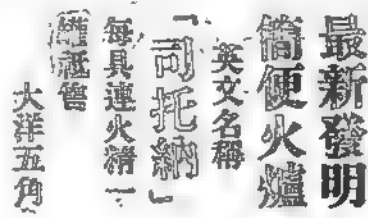 最新發明
簡便火爐
英文名稱
「司托納」
每具連火精一
罐祗售
大洋五角